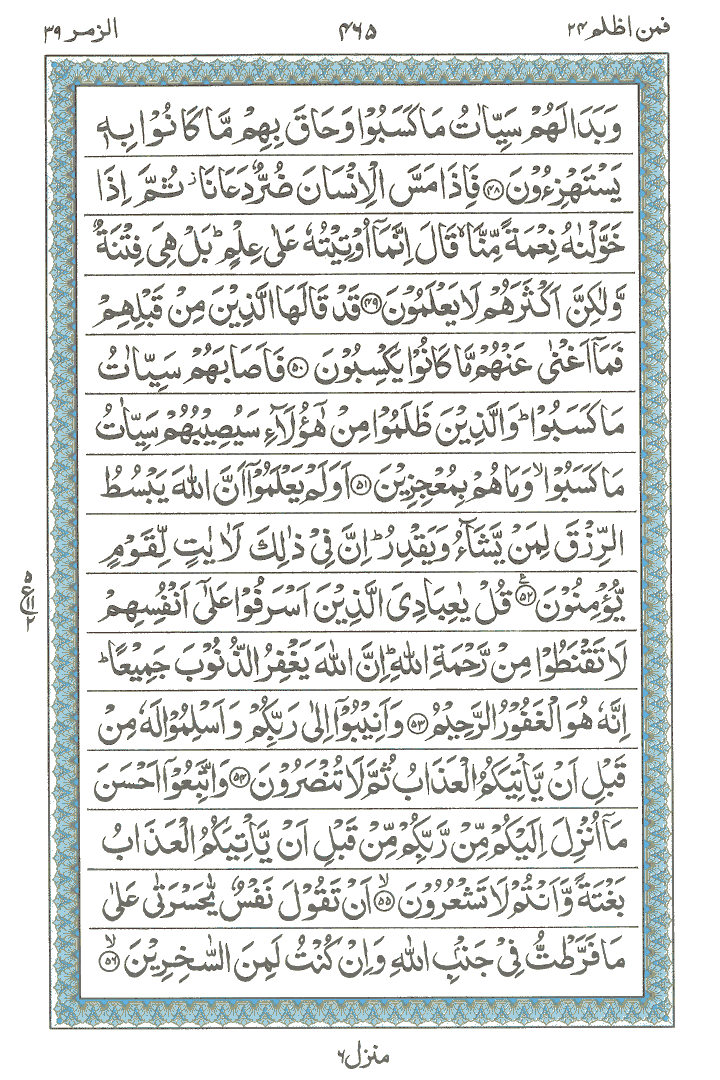 فمن اظلم ۲۴ ۴۶۵ الزمر ۳۹
وَبَدَا لَهُمْ سَيِّاٰتُ مَا كَسَبُوْا وَحَاقَ بِهِمْ مَّا كَانُوْا بِهٖ
يَسْتَهْزِءُوْنَ ﴿۴۸﴾ فَاِذَا مَسَّ الْاِنْسَانَ ضُرٌّ دَعَانَا ز ثُمَّ اِذَا
خَوَّلْنٰهُ نِعْمَةً مِّنَّا لا قَالَ اِنَّمَاۤ اُوْتِيْتُهٗ عَلٰى عِلْمٍ ط بَلْ هِيَ فِتْنَةٌ
وَّلٰكِنَّ اَكْثَرَهُمْ لَا يَعْلَمُوْنَ ﴿۴۹﴾ قَدْ قَالَهَا الَّذِيْنَ مِنْ قَبْلِهِمْ
فَمَاۤ اَغْنٰى عَنْهُمْ مَّا كَانُوْا يَكْسِبُوْنَ ﴿۵۰﴾ فَاَصَابَهُمْ سَيِّاٰتُ
مَا كَسَبُوْا ط وَالَّذِيْنَ ظَلَمُوْا مِنْ هٰۤؤُلَآءِ سَيُصِيْبُهُمْ سَيِّاٰتُ
مَا كَسَبُوْا لا وَمَا هُمْ بِمُعْجِزِيْنَ ﴿۵۱﴾ اَوَلَمْ يَعْلَمُوْۤا اَنَّ اللّٰهَ يَبْسُطُ
الرِّزْقَ لِمَنْ يَّشَآءُ وَيَقْدِرُ ط اِنَّ فِيْ ذٰلِكَ لَاٰيٰتٍ لِّقَوْمٍ
يُّؤْمِنُوْنَ ﴿۵۲﴾ ع قُلْ يٰعِبَادِيَ الَّذِيْنَ اَسْرَفُوْا عَلٰۤى اَنْفُسِهِمْ
۵ ع ۱۱ ۲
لَا تَقْنَطُوْا مِنْ رَّحْمَةِ اللّٰهِ ط اِنَّ اللّٰهَ يَغْفِرُ الذُّنُوْبَ جَمِيْعًا ط
اِنَّهٗ هُوَ الْغَفُوْرُ الرَّحِيْمُ ﴿۵۳﴾ وَاَنِيْبُوْۤا اِلٰى رَبِّكُمْ وَاَسْلِمُوْا لَهٗ مِنْ
قَبْلِ اَنْ يَّاْتِيَكُمُ الْعَذَابُ ثُمَّ لَا تُنْصَرُوْنَ ﴿۵۴﴾ وَاتَّبِعُوْۤا اَحْسَنَ
مَاۤ اُنْزِلَ اِلَيْكُمْ مِّنْ رَّبِّكُمْ مِّنْ قَبْلِ اَنْ يَّاْتِيَكُمُ الْعَذَابُ
بَغْتَةً وَّاَنْتُمْ لَا تَشْعُرُوْنَ ﴿۵۵﴾ لا اَنْ تَقُوْلَ نَفْسٌ يّٰحَسْرَتٰى عَلٰى
مَا فَرَّطْتُّ فِيْ جَنْۢبِ اللّٰهِ وَاِنْ كُنْتُ لَمِنَ السّٰخِرِيْنَ ﴿۵۶﴾ لا
منزل ۶